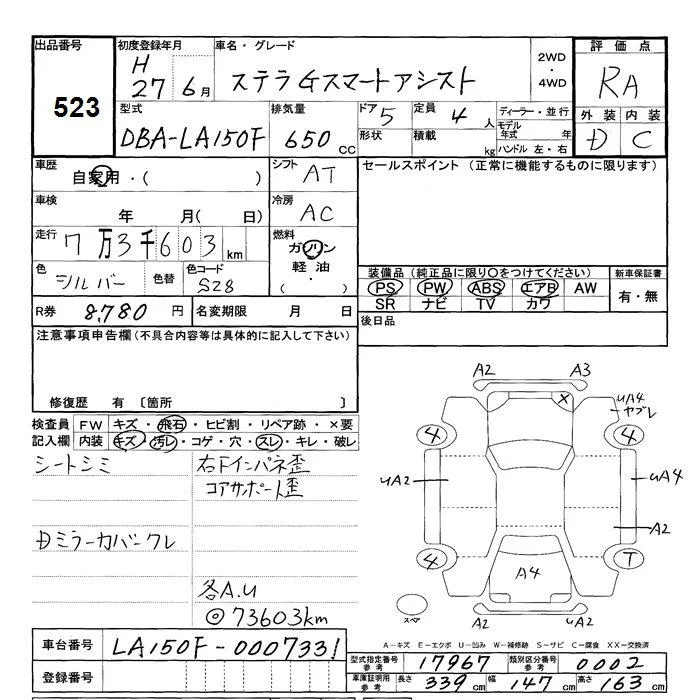 出品番号 初度登録年月 車名・グレード 2WD・4WD 評価点
523 H27 6月 ステラGスマートアシスト RA
外装 内装
型式 排気量 ドア 5 定員 4人 ディーラー・並行
DBA-LA150F 650cc 形状 積載 kg モデル年式 年 ハンドル 左・右 D C
車歴 シフト セールスポイント (正常に機能するものに限ります)
自家用・( ) AT
車検 冷房
年 月( 日) AC
走行 7万3千603km 燃料
ガソリン
軽油
( ・ )
色 色替 色コード 装備品 (純正品に限り○をつけてください) 新車保証書
シルバー S28 PS PW ABS エアB AW 有・無
SR ナビ TV カワ
R券 8,780円 名変期限 月 日 後日品
注意事項申告欄(不具合内容等は具体的に記入して下さい)
修復歴 有 〔箇所 〕
検査員 FW キズ・飛石・ヒビ割・リペア跡・×要
記入欄 内装 キズ・汚レ・コゲ・穴・スレ・キレ・破レ
シートシミ 右Fインパネ歪
コアサポート歪
Dミラーカバーワレ
各A.U
◎73603km
A2 A3
X UA4
ヤブレ
4 4
UA2 UA4
A2
4 T
A4
スペア A2 UA2
A-キズ E-エクボ U-凹み W-補修跡 S-サビ C-腐食 XX-交換済
車台番号 LA150F-0007331 型式指定番号 参考 17967 類別区分番号 参考 0002
登録番号 車庫証明用 参考 長さ 339cm 幅 147cm 高さ 163cm